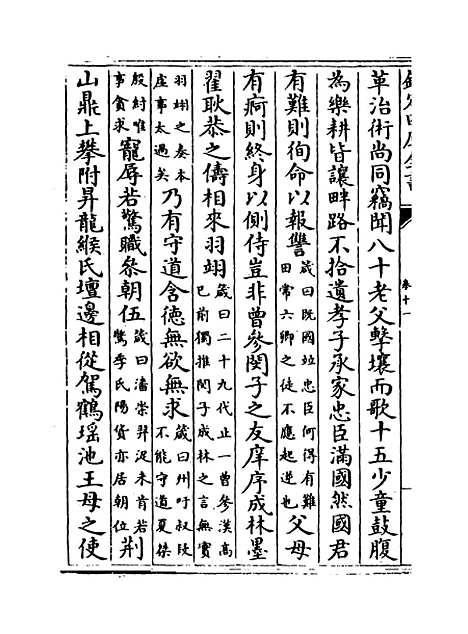 欽定四庫全書
卷十一
革治術尚同竊聞八十老父擊壤而歌十五少童鼓腹
為樂耕皆讓畔路不拾遺孝子承家忠臣滿國然國君
有難則徇命以報讐箴曰既國竝忠臣何得有難田常六卿之徒不應起逆也父母
有痾則終身以側侍豈非曾參閔子之友庠序成林墨
翟耿恭之儔相來羽翊箴曰二十九代止一曾參漢高已前獨推閔子成林之言無實
羽翊之奏本虛事太過矣乃有守道含德無欲無求箴曰州吁叔段不能守道夏桀
殷紂唯事貪求寵辱若驚職叅朝伍箴曰潘崇羿浞未肯若驚季氏陽貨亦居朝位荆
山鼎上攀附昇龍緱氏壇邊相從駕鶴瑶池王母之使